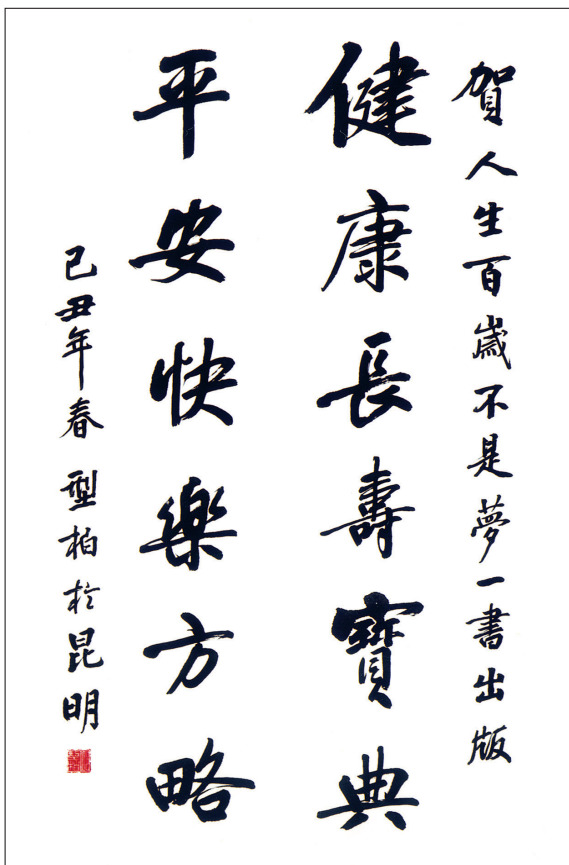 賀人生百歳不是夢一書出版
健康長壽寶典
平安快樂方略
己丑年春 型柏於昆明